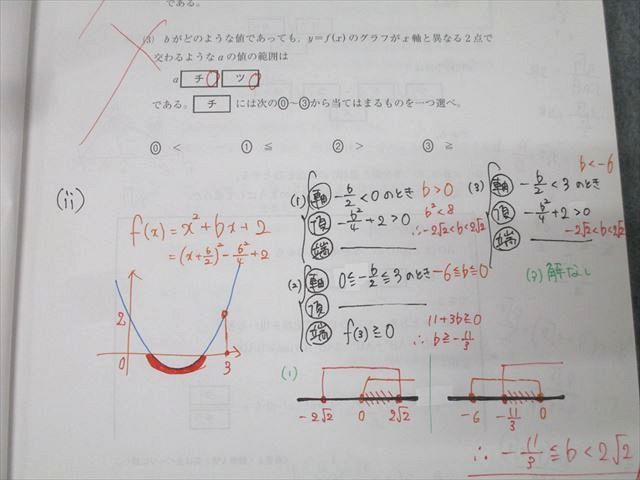 である。
(3) bがどのような値であっても，y=f(x)のグラフがx軸と異なる2点で
交わるようなaの値の範囲は
a チ ツ
である。 チ には次の⓪～③から当てはまるものを一つ選べ。
⓪ < ① ≦ ② > ③ ≧
(ii)
f(x)=x²+bx+2
=(x+b/2)²-b²/4+2
2
0
3
(1) 軸 -b/2<0のとき b>0
頂 -b²/4+2>0 b²<8
∴-2√2<b<2√2
端
(2) 軸 0≦-b/2≦3のとき -6≦b≦0
頂
端 f(3)≧0 11+3b≧0
∴ b≧-11/3
(3) 軸 -b/2<3のとき b<-6
頂 -b²/4+2>0
-2√2<b<2√2
端
(3) 解なし
(1)
-2√2 0 2√2
-6 -11/3 0
∴ -11/3≦b<2√2